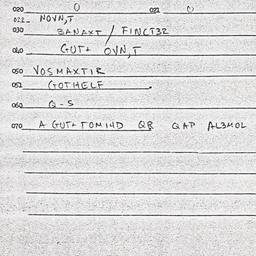 020 0 022 0
022 NOVN,T
030 BANAXT / FINCT32
040 GUT+ OVN,T
050 VOSMAXTIR
052 GOTHELF
060 Q-S
070 A GUT+ TOMIHD QB QAP AL3MOL